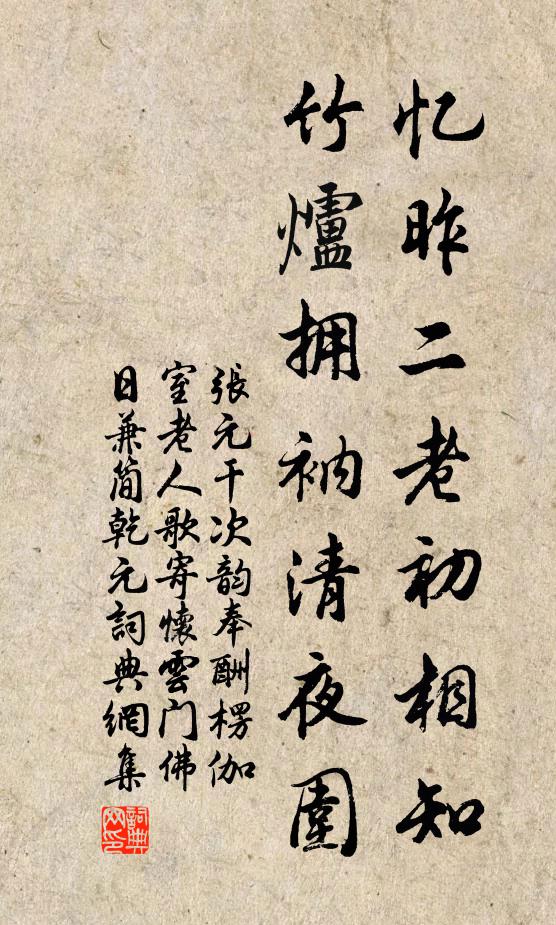 忆昨二老初相知
竹爐拥衲清夜圍
張元干次韵奉酬楞伽
室老人歌寄懷雲门佛
日兼简乾元詞典網集
詞典网印